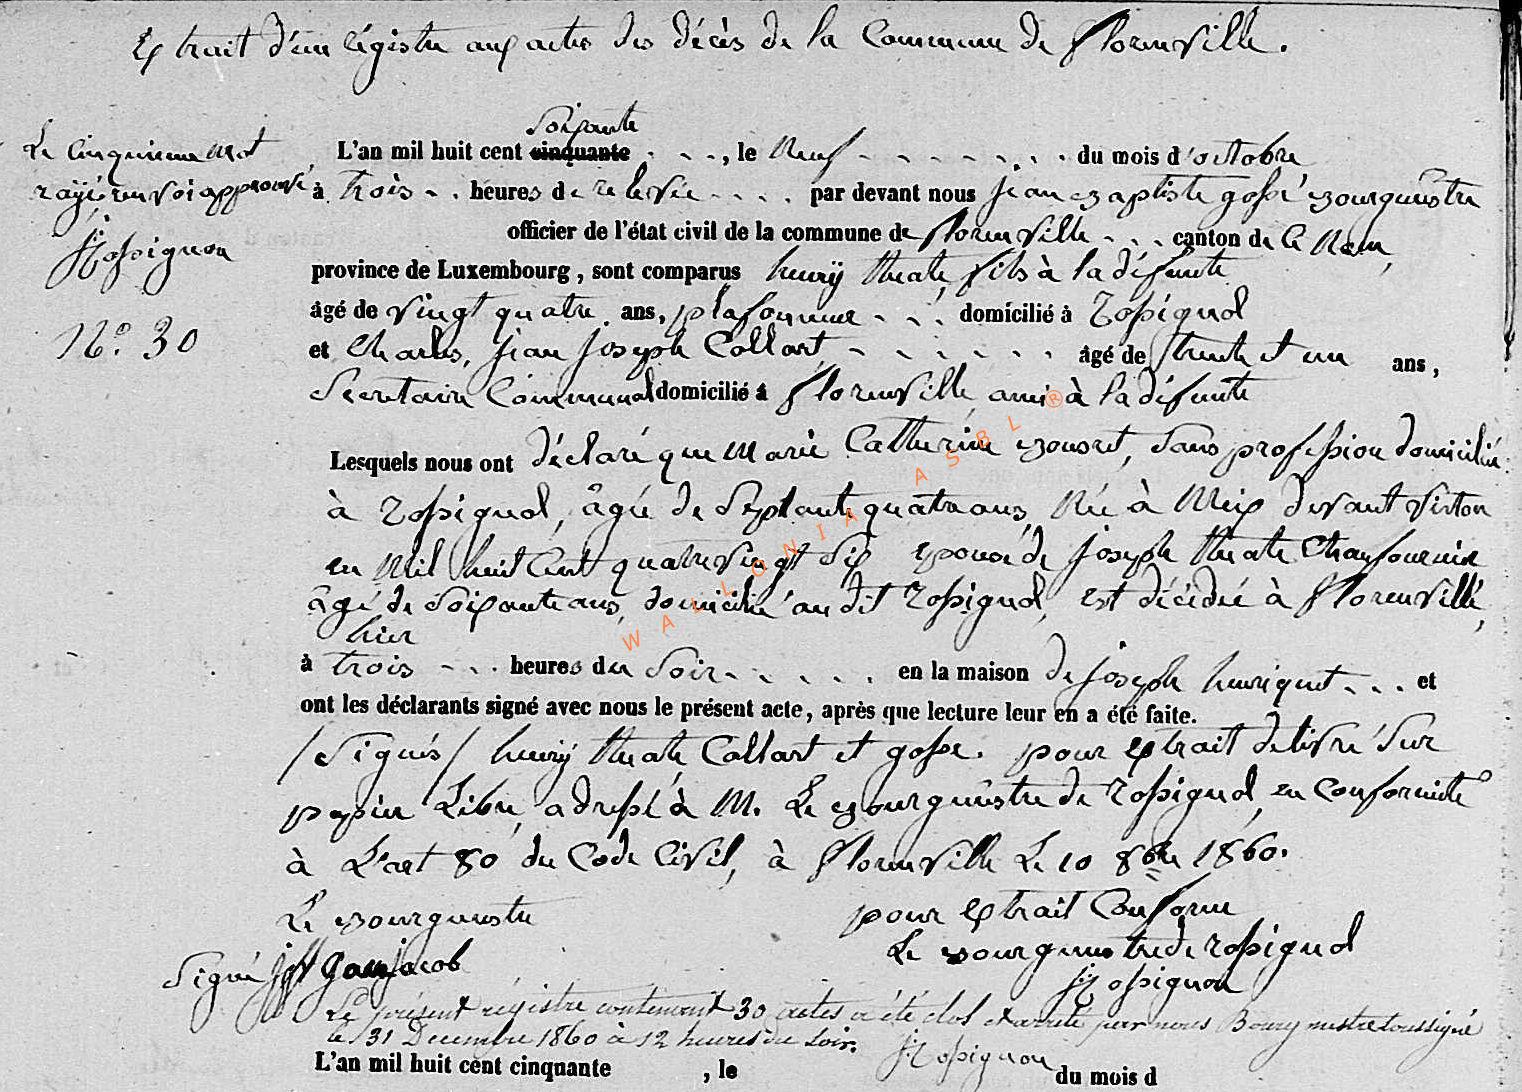 Extrait d'un régistre aux actes des décès de la Commune de florenville.
Soixante
Le Cinquieme Mot
L'an mil huit cent cinquante , le Neuf du mois d'octobre
rayé renvoi approuvé
à trois heures de relevée par devant nous jean Baptiste gossé Bourguestre
JRossignon
officier de l'état civil de la commune de florenville canton de le Mem,
province de Luxembourg, sont comparus henrÿ theate, fils à la défunte
N° 30
âgé de vingt quatre ans, plafonneur domicilié à Rossignol
et Charles, jean joseph Collart âgé de trente et un ans,
Secretaire Communal domicilié à florenville ami à la défunte
Lesquels nous ont déclaré que Marie Catherine Bousret, Sans profession domiciliée
à Rossignol, âgée de Septante quatre ans, Née à Meix devant virton
en Mil huit Cent quatre vingt Six epouse de joseph theate Chaufournier
âgé de Soixante ans, domicilié au dit Rossignol, est décédée à florenville,
hier
à trois heures du Soir en la maison de joseph henriquet et
ont les déclarants signé avec nous le présent acte, après que lecture leur en a été faite.
/Signés/ henrÿ theate Collart et gosse. pour extrait délivré Sur
papier Libre, adressé à M. Le Bourguestre de Rossignol, en Conformité
à L'art 80 du Code Civil, à florenville Le 10 8bre 1860.
Le Bourguestre pour extrait Conforme
Le Bourgmestre de Rossignol
Signé jacob
JRossignon
Le présent régistre contenant 30 actes a été clos et arreté par nous Bourgmestre soussigné
le 31 Decembre 1860 à 12 heures du soir. JRossignon
L'an mil huit cent cinquante , le du mois d
WALLONIA ASBL ®